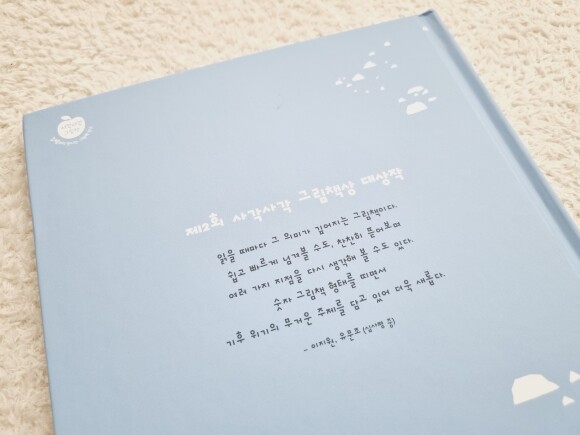 제2회 사각사각 그림책상 대상작
읽을 때마다 그 의미가 깊어지는 그림책이다.
쉽고 빠르게 넘겨볼 수도, 찬찬히 뜯어보며
여러 가지 지점을 다시 생각해 볼 수도 있다.
숫자 그림책 형태를 띠면서
기후 위기의 무거운 주제를 담고 있어 더욱 새롭다.
- 이지원, 유문조 (심사평 중)